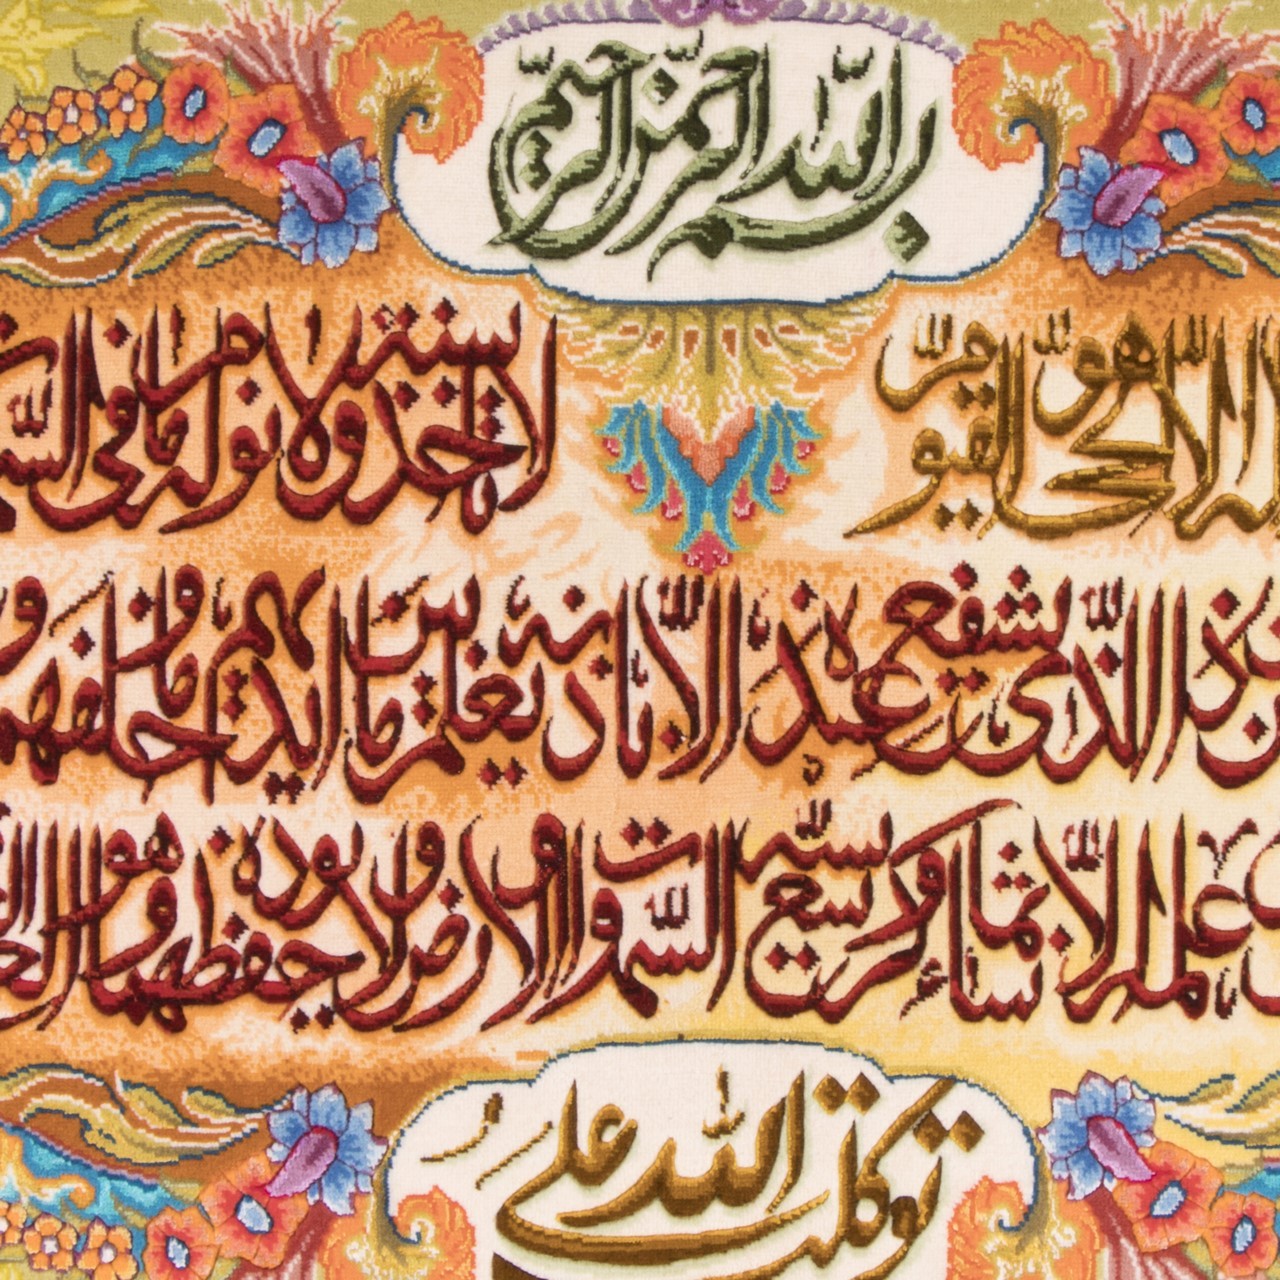 بسم الله الرحمن الرحيم
الله لا اله الا هو الحي القيوم لا تأخذه سنة ولا نوم له ما في
الذي يشفع عنده الا باذنه يعلم ما بين ايديهم وما خلفهم و
علمه الا بما شاء وسع كرسيه السموات والارض ولا يؤده حفظهما وهو
توكلت على الله